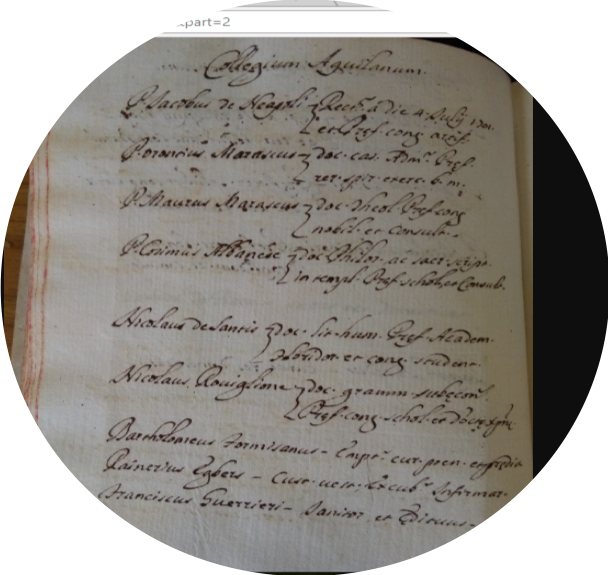 part=2
Collegium Aquilanum.
P. Jacobus de Neapoli Rect. a die 4. July 1701.
et Pref. cong. artif.
P. Orontius Marascus doc. cas. Adm. Pref.
rer. spir. exerc. b. m.
P. Maurus Marascus doc. theol. Pref. cong
nobil. et Consult.
P. Cosimus Albanese doc. Philos. ac sacr. script.
in templ. Pref. schol. et Consult.
Nicolaus de Santis doc. lit. hum. Pref. Academ.
et cong. student.
Nicolaus Roviglione doc. gramm.
Pref. cong. schol. et
Bartholomeus Formisanus - Empt. cur. pen.
Rainerius Egbers - Cust. vest. Excub. Infirmar.
Franciscus Guerrieri - Janitor et Edituus -